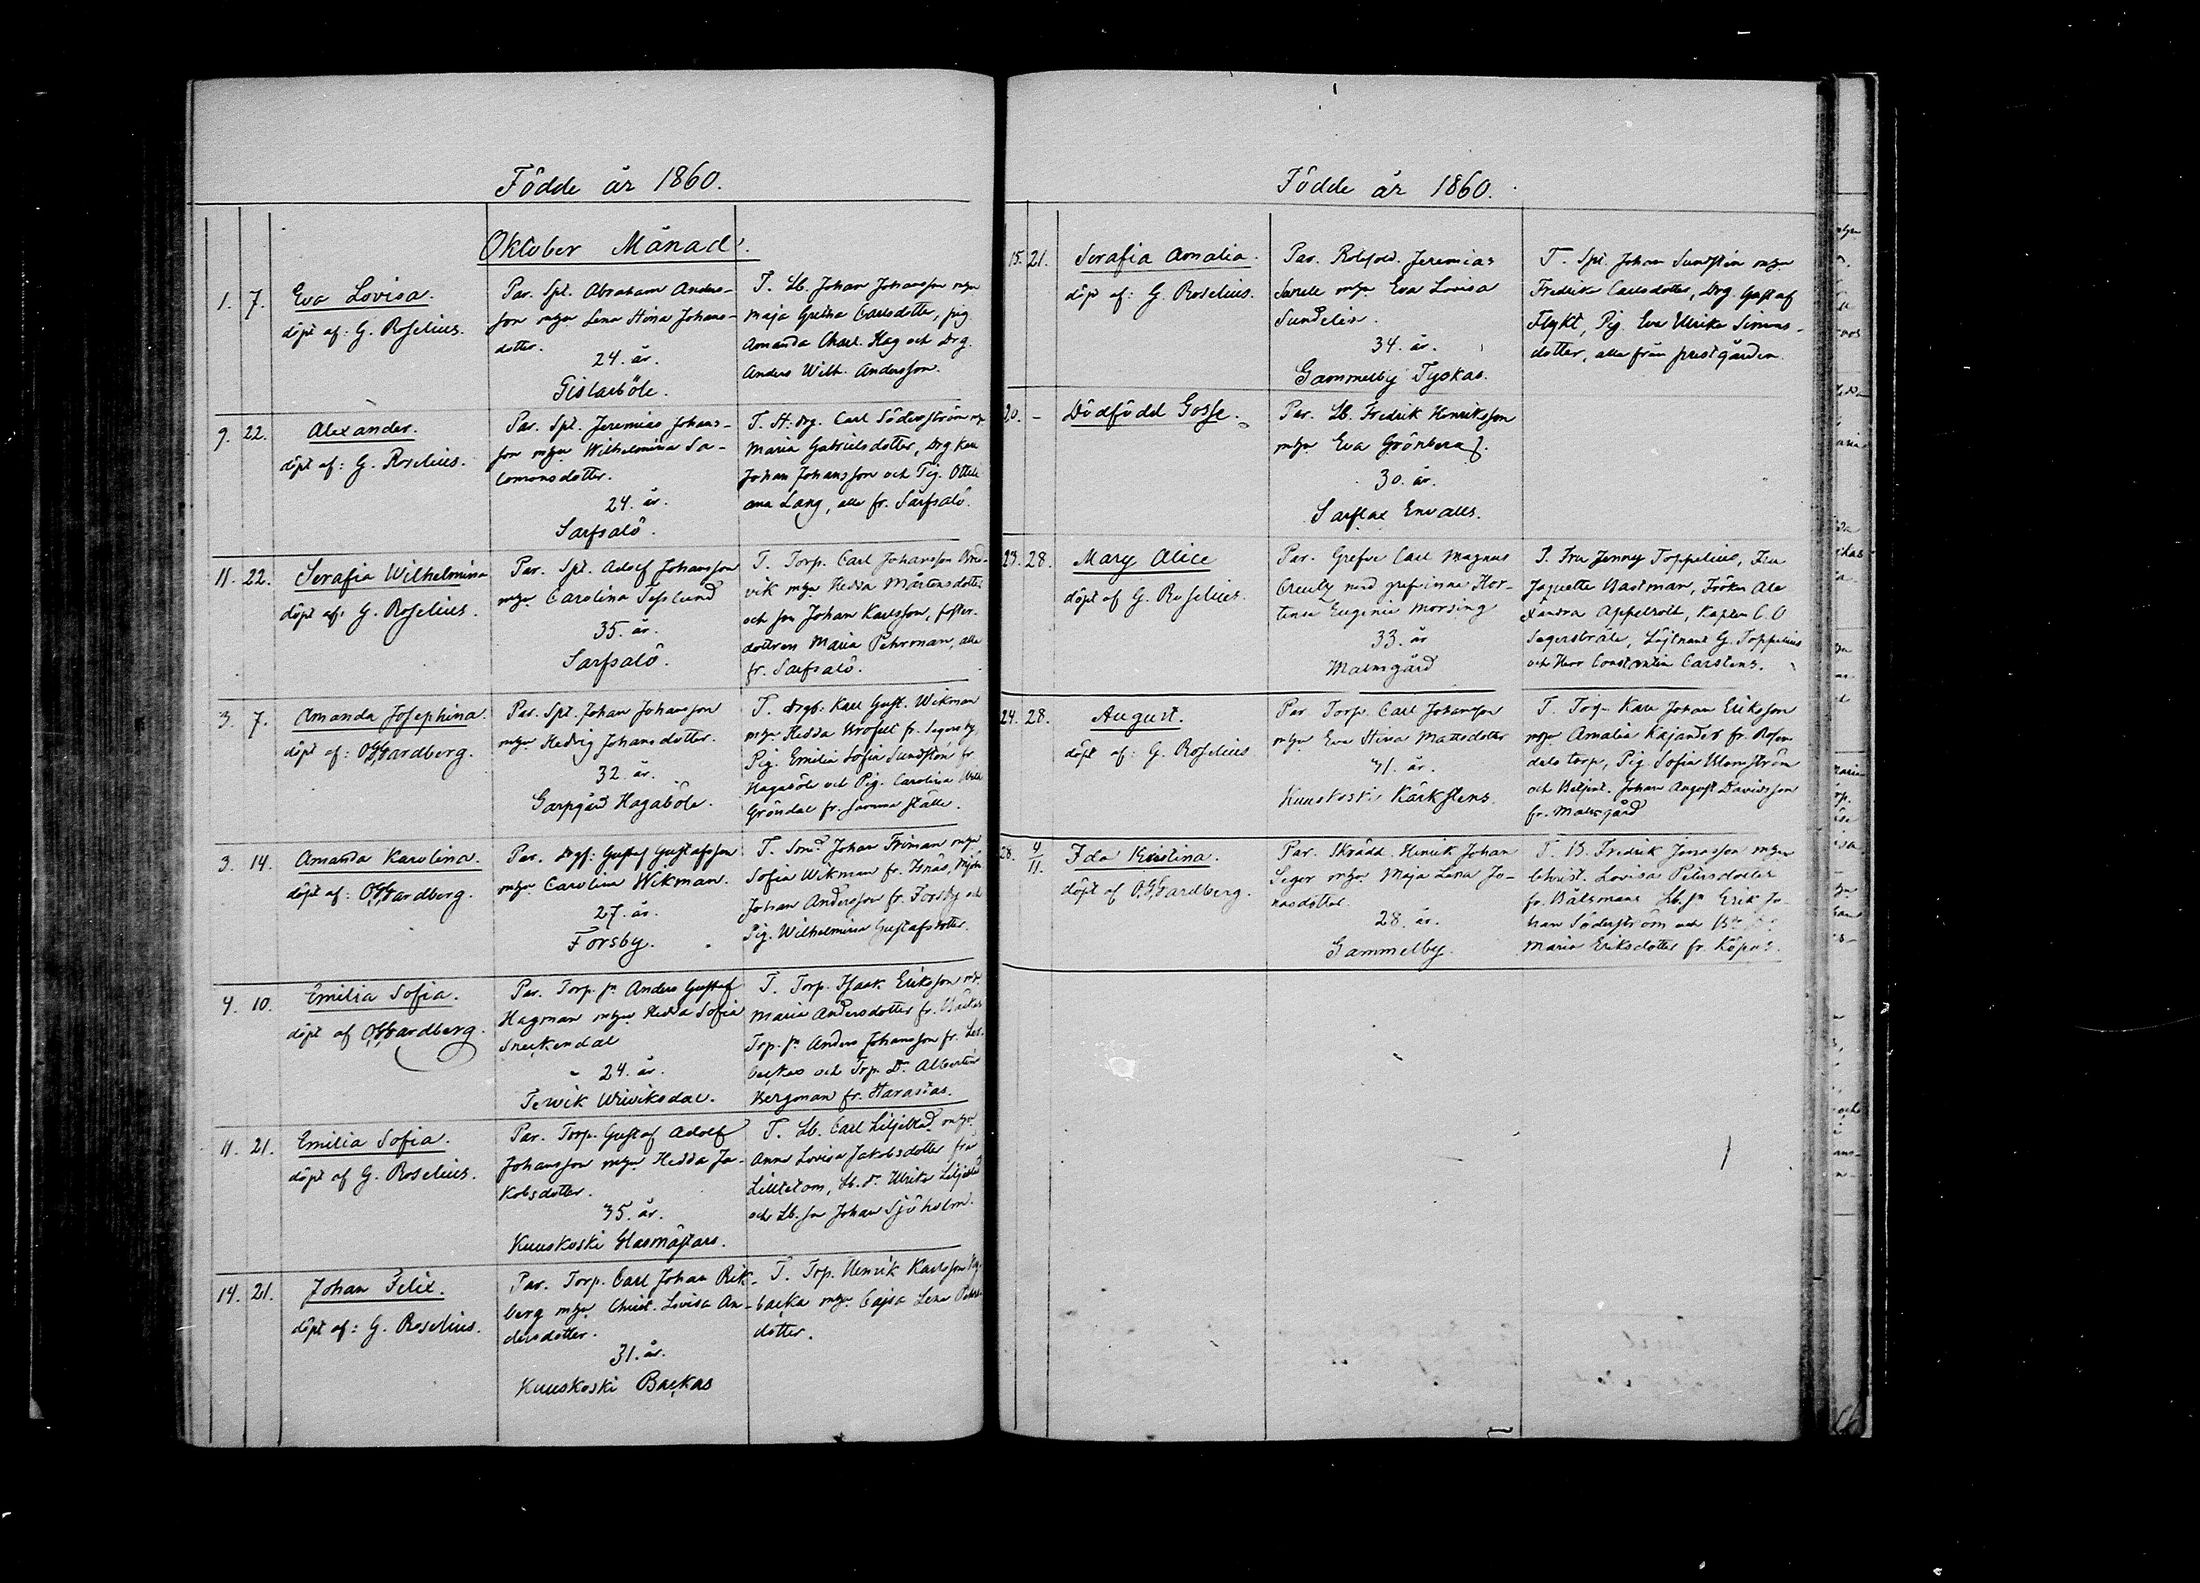 Födde år 1860.
Oktober Månad.
1. 7. Eva Lovisa.
döpt af: G. Roselius.
Par. Spt. Abraham Anders-
son mhu Lena Stina Johans-
dotter.
24. år.
Gislarböle.
T. Lb. Johan Johansson mhu
Maja Gretha Carlsdotter, pig.
Amanda Charl. Hag och Drg.
Anders Wilh. Andersson.
9. 22. Alexander.
döpt af: G. Roselius.
Par. Spt. Jeremias Johans-
son mhu Wilhelmina Sa-
lomonsdotter.
24. år.
Sarfsalö.
T. H: drg. Carl Söderström mhu
Maria Gabrielsdotter, Drg Karl
Johan Johansson och Pig. Ottili
ana Lang, alla fr. Sarfsalö.
11. 22. Serafia Wilhelmina
döpt af: G. Roselius.
Par. Spt. Adolf Johansson
mhu Carolina Seslund
35. år.
Sarfsalö.
T. Torp. Carl Johansson Bred-
vik mhu Hedda Mårtensdotter
och sn Johan Karlsson, foster-
dottren Maria Pehrman, alla
fr. Sarfsalö.
3. 7. Amanda Josephina.
döpt af: O. G. Gardberg.
Par. Spt. Johan Johansson
mhu Hedvig Johansdotter.
32. år.
Garpgård Hagaböle.
T. drgb. Karl Gust. Wikman
mhu Hedda Brofelt fr. Segersby
Pig. Emilia Sofia Sundström fr.
Hagaböle och Pig. Carolina
Gröndal fr. samma ställe.
3. 14. Amanda Karolina.
döpt af: O. G. Gardberg.
Par. drgs. Gustaf Gustafsson
mhu Carolina Wikman.
27. år.
Forsby.
T. Smd Johan Friman mhu
Sofia Wikman fr. Isnäs, Mjöln
Johan Andersson fr. Forsby och
Pig. Wilhelmina Gustafsdotter.
4. 10. Emilia Sofia.
döpt af O. G. Gardberg.
Par. Torp. sn Anders Gustaf
Hagman mhu Hedda Sofia
Sneckendal
24. år.
Tervik Ulriviksdal.
T. Torp. Isaak Eriksson mhu
Maria Andersdotter fr. Backas
Torp. sn Anders Johansson fr. Ler-
backas och Trp. Dr. Albertina
Bergman fr. Harastas.
11. 21. Emilia Sofia.
döpt af G. Roselius.
Par. Torp. Gustaf Adolf
Johansson mhu Hedda Ja-
kobsdotter.
35. år.
Kuuskoski Glasmästars.
T. Lb. Carl Liljeblad mhu
Anna Lovisa Jakobsdotter från
Lilltetom, Lb. dr. Ulrika Liljeblad
och Lb. sn Johan Sjöholm.
14. 21. Johan Felix.
döpt af: G. Roselius.
Par. Torp. Carl Johan Rik-
berg mhu Christ. Lovisa An-
dersdotter.
31. år.
Kuuskoski Backas
T. Torp. Henrik Karlsson Ny-
backa mhu Cajsa Lena Peters-
dotter.
Födde år 1860.
15. 21. Serafia Amalia.
döpt af: G. Roselius.
Par. Rotesold. Jeremias
Surell mhu Eva Lovisa
Sundelin.
34. år.
Gammelby Tyskas.
T. Spt. Johan Sundsten mhu
Fredrika Carlsdotter, Drg. Gustaf
Flykt, Pig. Eva Ulrika Simons-
dotter, alla från prestgården.
20. - Dödfödd Gosse.
Par. Lb. Fredrik Henriksson
mhu Eva Grönberg.
30. år.
Sarflax Envalls.
23. 28. Mary Alice
döpt af G. Roselius.
Par. Grefve Carl Magnus
Creutz med grefvinna Hor-
tense Eugenie Morsing
33. år
Malmgård
T. Fru Jenny Toppelius, Fru
Jaquette Bastman, Fröken Ale
xandra Appelroth, Kapten C. O
Segerstråle, Löjtnant G. Toppelius
och Herr Constantin Carstens.
24. 28. August.
döpt af: G. Roselius
Par Torp. Carl Johansson
mhu Eva Stina Mattsdotter
31. år.
Kuuskoski Kärkstens
T. Torp. Karl Johan Eriksson
mhu Amalia Kajander fr. Rosen
dals torp, Pig Sofia Malmström
och Betjent. Johan August Davidsson
fr. Malmgård
28. 4/11. Ida Kristina.
döpt af O. G. Gardberg.
Par. Skrädd. Henrik Johan
Seger mhu Maja Lena Jo-
nasdotter.
28. år.
Gammelby.
T. B. Fredrik Jonasson mhu
Christ. Lovisa Petersdotter
fr. Båtsmans Lb. sn Erik Jo-
han Söderström och
Maria Eriksdotter fr. Köpas.